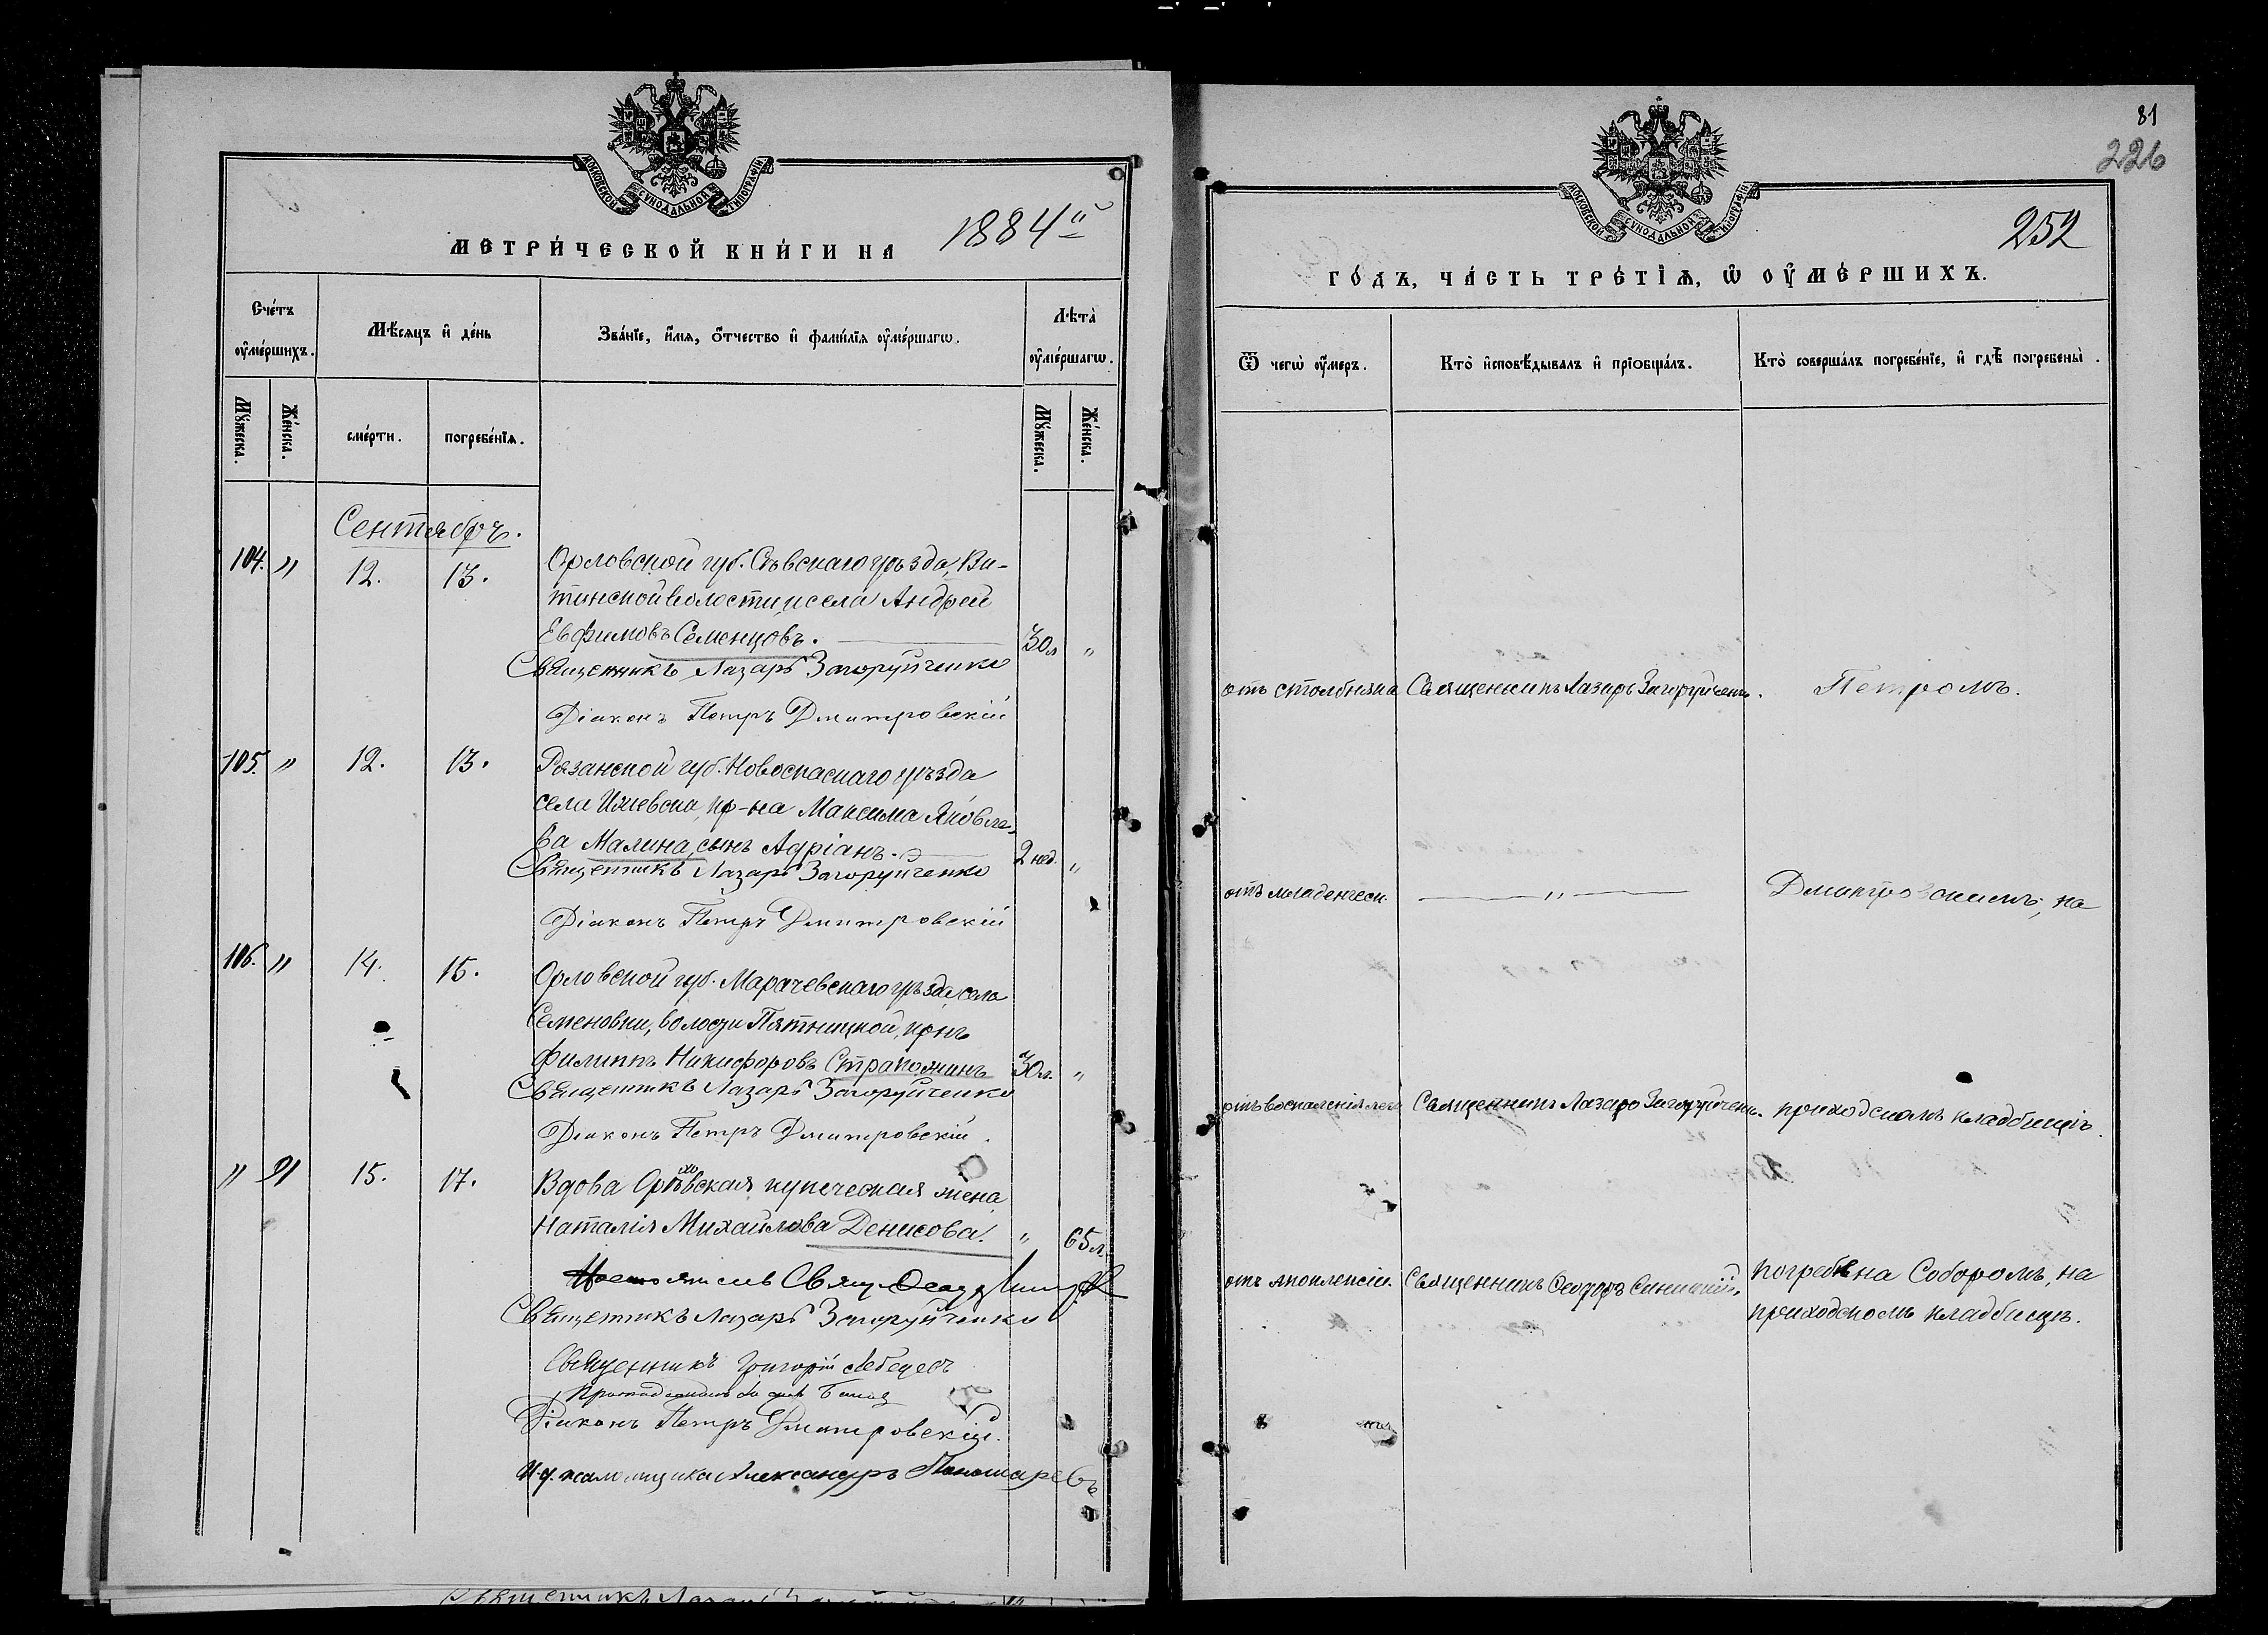 МОСКОВСКОЙ СѴНОДАЛЬНОЙ ТИПОГРАФІИ
МЕТРИ́ЧЕСКОЙ КНИ́ГИ НА 1884й
Сче́тъ оу҆ме́ршихъ.
Мѣ́сяцъ и҆ де́нь
Зва́нїе, и҆́мя, ѻ҆́тчество и҆ фами́лїя оу҆ме́ршагѡ.
Лѣта̀ оу҆ме́ршагѡ.
Мꙋ́жеска.
Же́нска.
сме́рти.
погребе́нїя.
Мꙋ́жеска.
Же́нска.
Сентябрь.
104. " 12. 13. Орловской губ. Сѣвскаго уѣзда, Ви-
тинской волости и села Андрей
Евфимовъ Семенцовъ. 30 л "
Священникъ Лазарь Загоруйченко
Діаконъ Петръ Дмитровскій
105. " 12. 13. Рязанской губ. Новоспаскаго уѣзда
села Ижевска, кр-на Максима Яковле-
ва Малина, сынъ Адріанъ. 2 нед. "
Священникъ Лазарь Загоруйченко
Діаконъ Петръ Дмитровскій
106. " 14. 15. Орловской губ. Марачевскаго уѣзда села
Семеновки, волости Пятницкой, кр-нъ
Филиппъ Никифоровъ Страпожинъ 30 л. "
Священникъ Лазарь Загоруйченко
Діаконъ Петръ Дмитровскій.
" 91 15. 17. Вдова Орловская купеческая жена
Наталія Михайлова Денисова. " 65 л.
Свящ. Ѳеод.
Священникъ Лазарь Загоруйченко
Священникъ Григорій Лебедевъ
Діаконъ Петръ Дмитровскій.
И. д. псаломщика Александръ Пономаревъ
81
226
252
МОСКОВСКОЙ СѴНОДАЛЬНОЙ ТИПОГРАФІИ
ГО́ДЪ, ЧА́СТЬ ТРЕ́ТЇѦ, Ѡ҆ ОУ҆МЕ́РШИХЪ.
Ѿ чегѡ̀ оу҆́меръ.
Кто̀ и҆сповѣ́дывалъ и҆ прїѻбща́лъ.
Кто̀ соверша́лъ погребе́нїе, и҆ гдѣ̀ погребены̀.
отъ столбняка Священникъ Лазарь Загоруйченко. Петромъ.
отъ младенческ. " Дмитровскимъ, на
отъ воспаленія лег. Священникъ Лазарь Загоруйченк. приходскомъ кладбищѣ.
отъ апоплексіи. Священникъ Ѳеодоръ погребена Соборомъ, на
приходскомъ кладбищѣ.